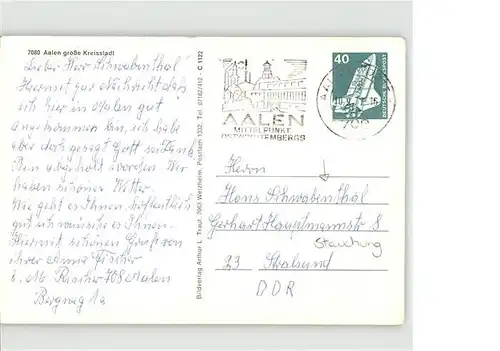 7080 Aalen große Kreisstadt
Lieber Herr Schwabenthal
Hiermit gut Nachricht daß
ich hier in Aalen gut
angekommen bin, ich habe
aber doch gesagt Gott sei Dank
Bin abgeholt worden Wir
haben schönes Wetter.
Wie geht es Ihnen hoffentlich
gut ich wünsche es Ihnen.
Hiermit schönen Gruß von
ihrer Anna Fischer
b. M. 708 Aalen
Bergweg 1a
Bildverlag Arthur L. Traut, 7063 Welzheim, Postfach 1332, Tel. 07182/412 - C 1122
AALEN
MITTELPUNKT
OSTWÜRTTEMBERGS
AA
10.
-16
708
40
DEUTSCHE BUNDESPOST
Herrn
Hans Schwabenthal
Gerhart Hauptmannstr 8
Stauchung
23 Stralsund
DDR